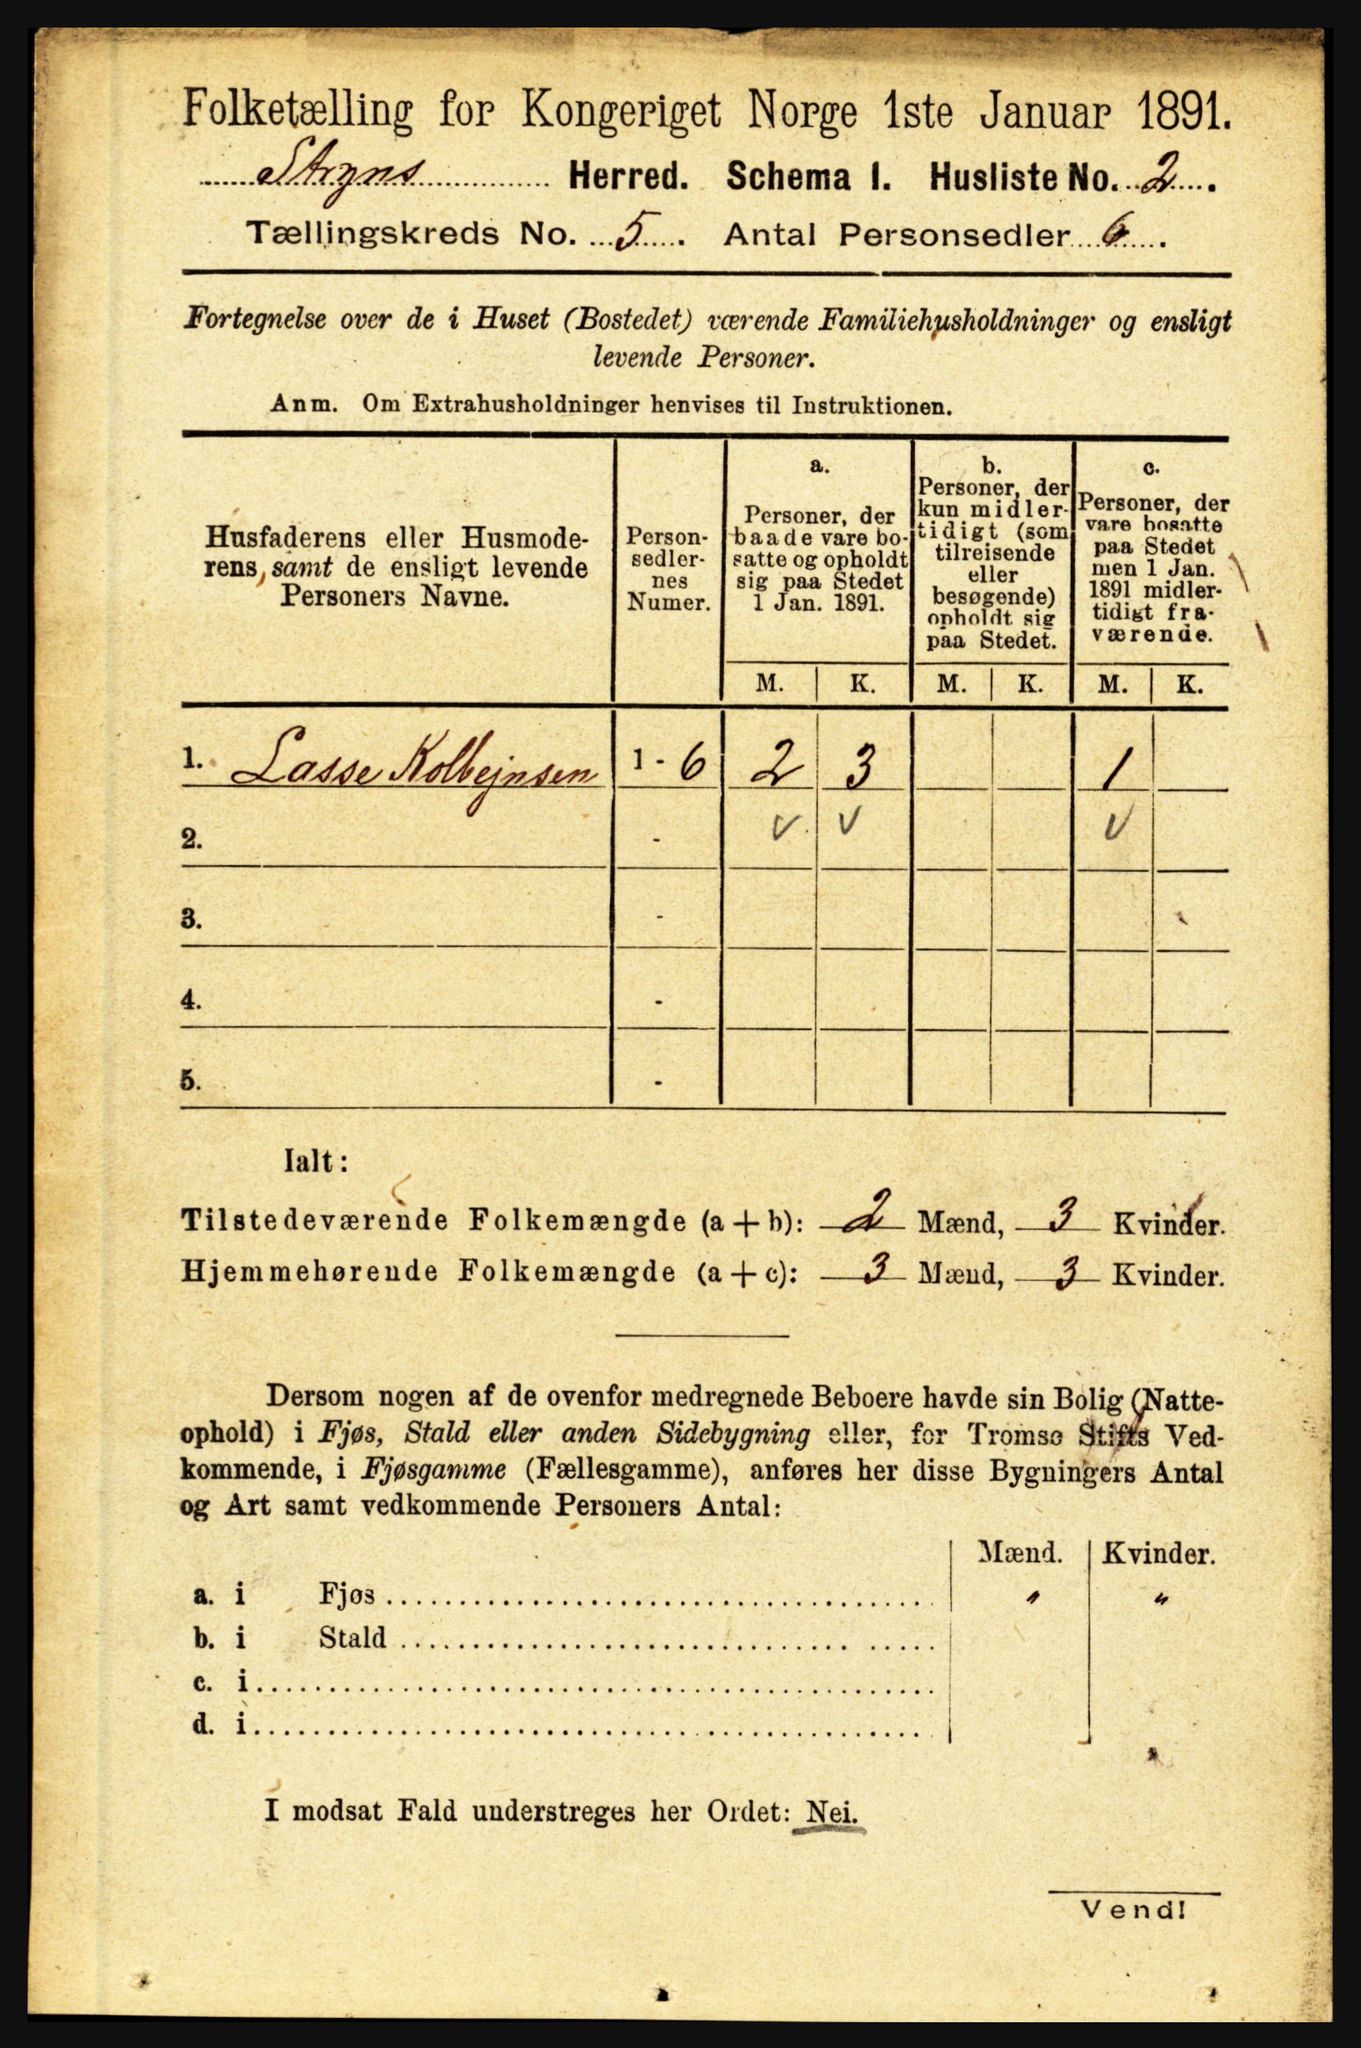 Folketælling for Kongeriget Norge 1ste Januar 1891.
Stryns Herred. Schema I. Husliste No. 2.
Tællingskreds No. 5. Antal Personsedler 6.
Fortegnelse over de i Huset (Bostedet) værende Familiehusholdninger og ensligt
levende Personer.
Anm. Om Extrahusholdninger henvises til Instruktionen.
Husfaderens eller Husmode-
rens, samt de ensligt levende
Personers Navne.
Person-
sedler-
nes
Numer.
a.
Personer, der
baade vare bo-
satte og opholdt
sig paa Stedet
1 Jan. 1891.
b.
Personer, der
kun midler-
tidigt (som
tilreisende
eller
besøgende)
opholdt sig
paa Stedet.
c.
Personer, der
vare bosatte
paa Stedet
men 1 Jan.
1891 midler-
tidigt fra-
værende.
M. K. M. K. M. K.
1. Lasse Kolbejnsen 1 - 6 2 3 1
2. - v v v
3. -
4. -
5. -
Ialt:
Tilstedeværende Folkemængde (a + b): 2 Mænd, 3 Kvinder.
Hjemmehørende Folkemængde (a + c): 3 Mænd, 3 Kvinder.
Dersom nogen af de ovenfor medregnede Beboere havde sin Bolig (Natte-
ophold) i Fjøs, Stald eller anden Sidebygning eller, for Tromsø Stifts Ved-
kommende, i Fjøsgamme (Fællesgamme), anføres her disse Bygningers Antal
og Art samt vedkommende Personers Antal:
Mænd. Kvinder.
a. i Fjøs " "
b. i Stald
c. i
d. i
I modsat Fald understreges her Ordet: Nei.
Vend!